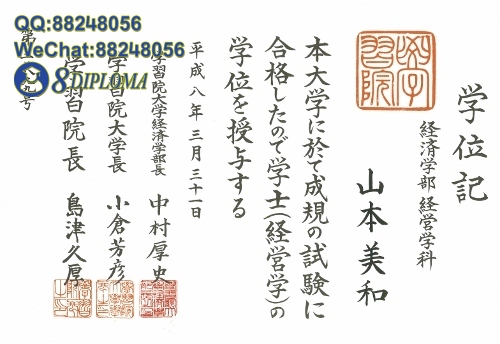 学位記
経済学部 経営学科
山本美和
本大学に於て成規の試験に
合格したので学士(経営学)の
学位を授与する
平成八年三月三十一日
学習院大学経済学部長 中村厚史
学習院大学長 小倉芳彦
学習院長 島津久厚
QQ:88248056
WeChat:88248056
8DIPLOMA
学習院